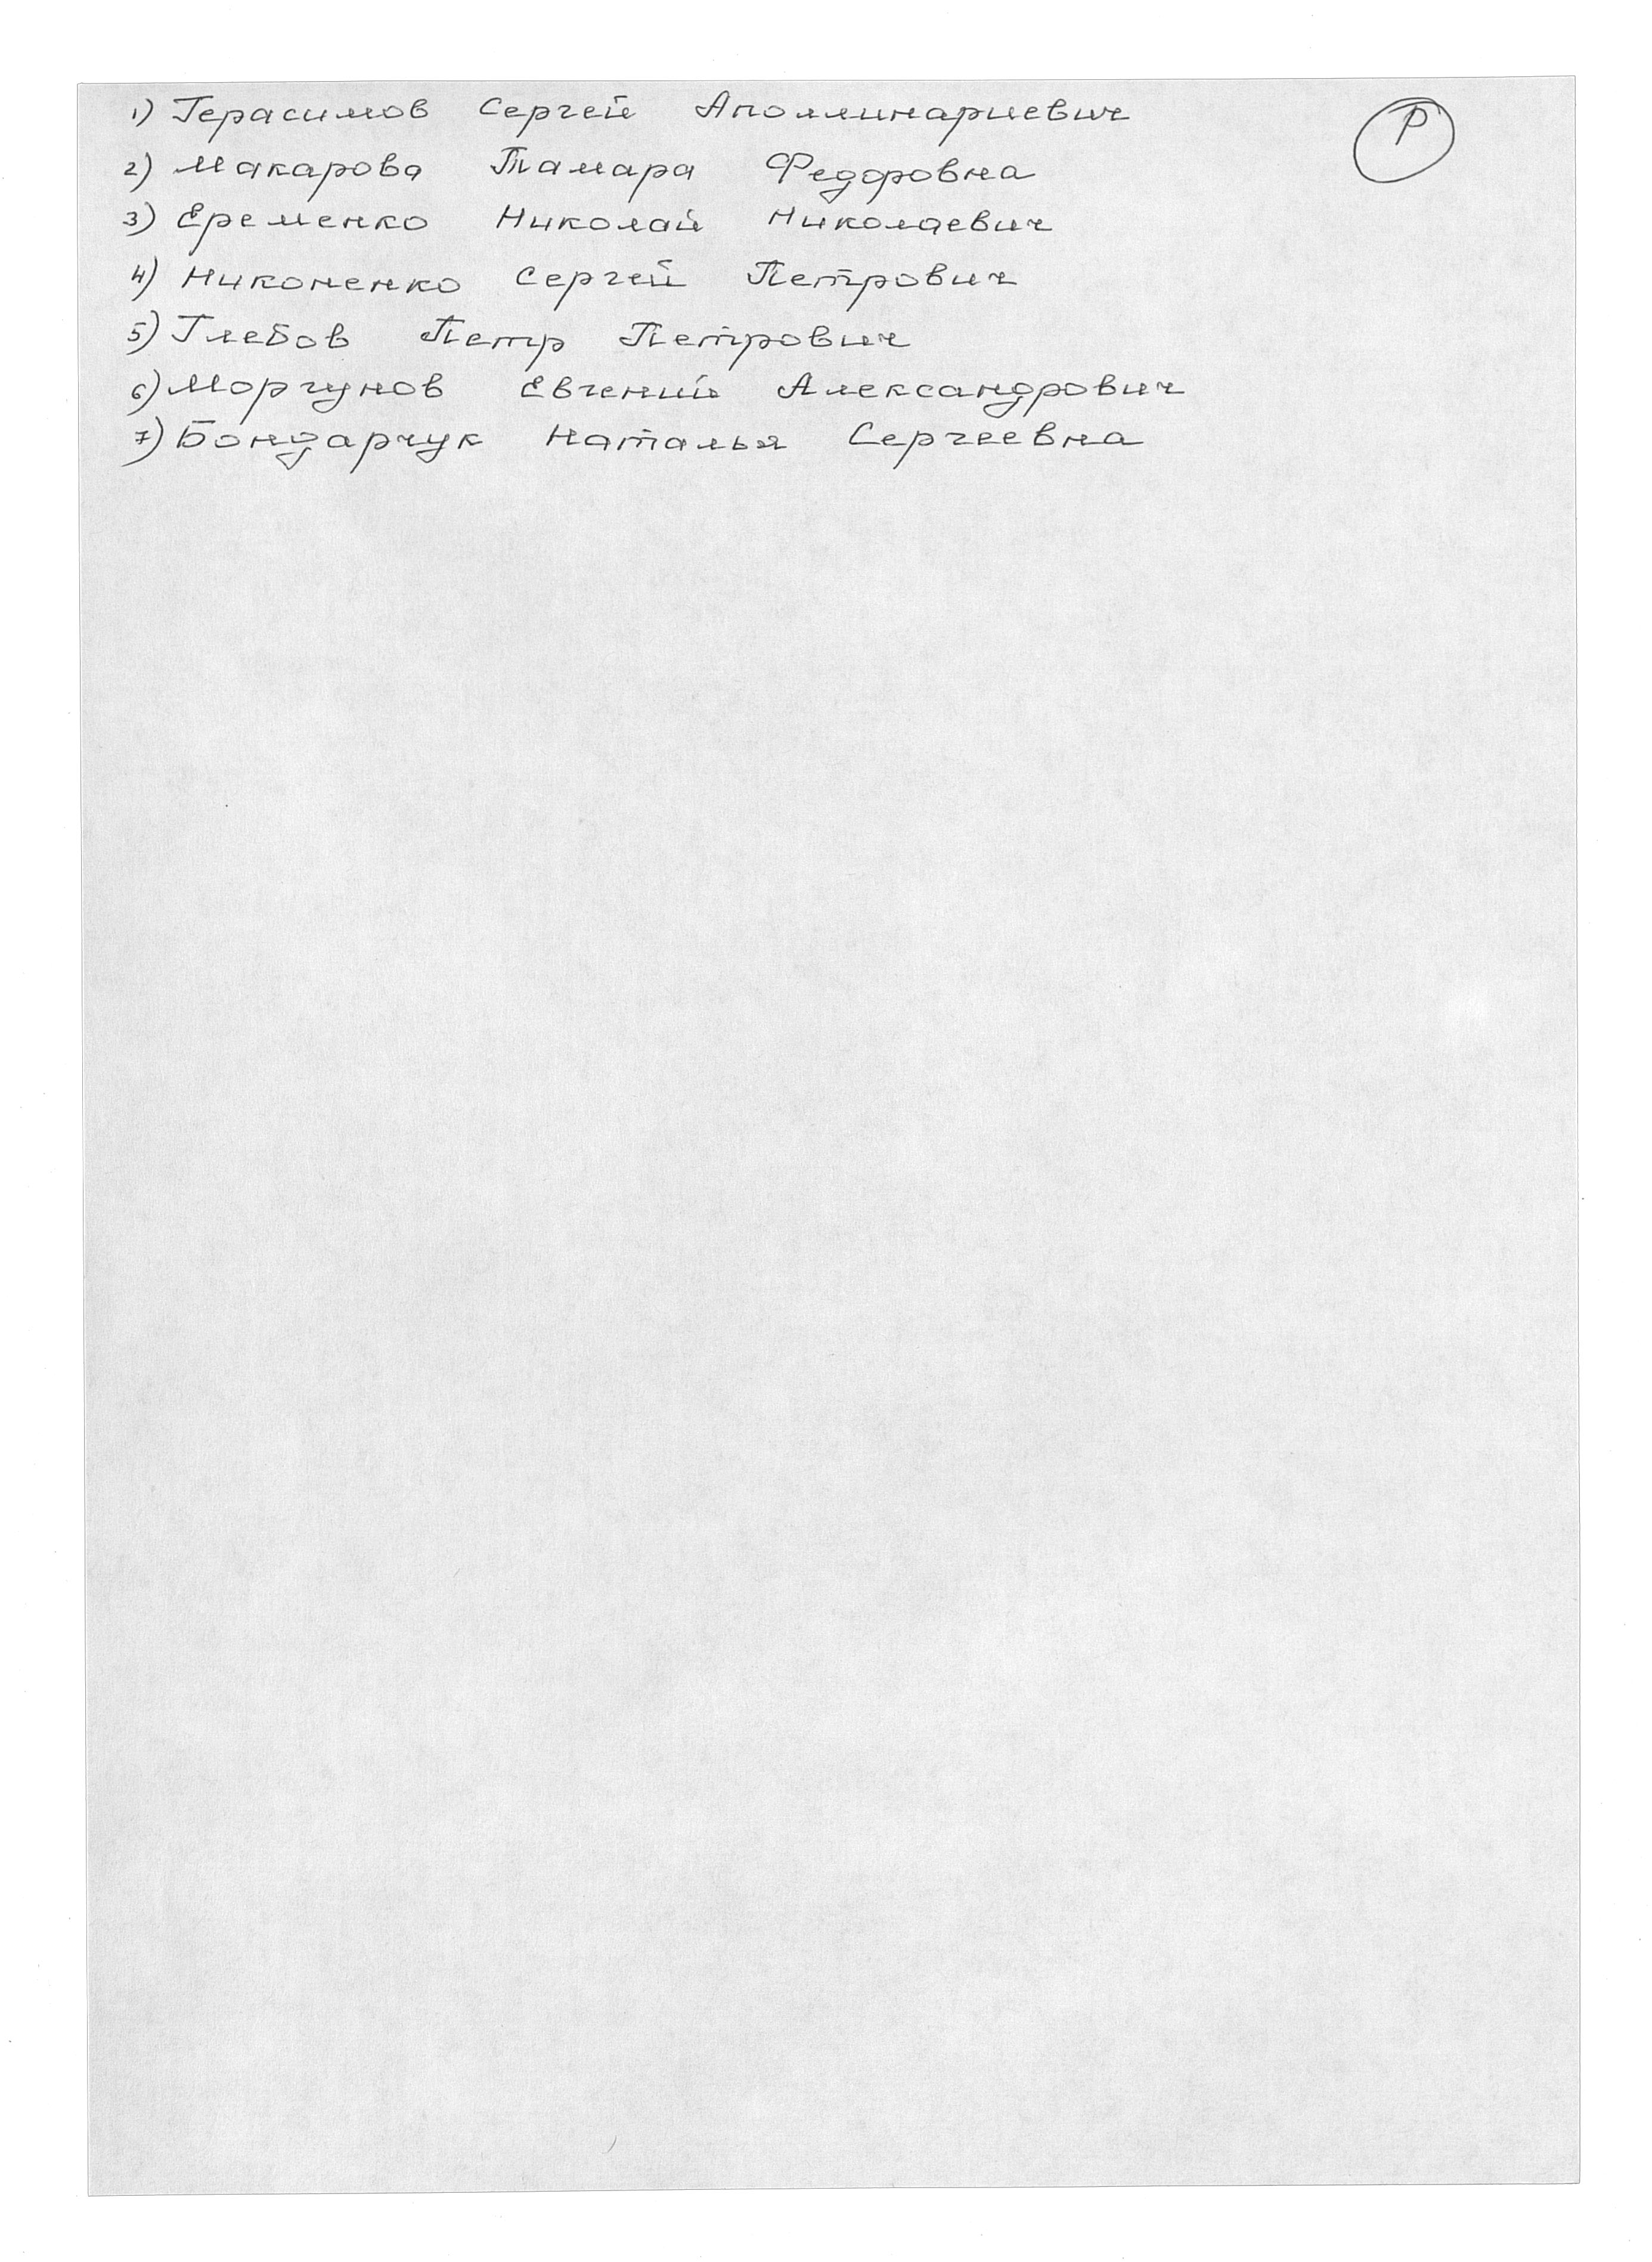 1) Герасимов Сергей Аполлинариевич
Р
2) Макарова Тамара Федоровна
3) Еременко Николай Николаевич
4) Никоненко Сергей Петрович
5) Глебов Петр Петрович
6) Моргунов Евгений Александрович
7) Бондарчук Наталья Сергеевна